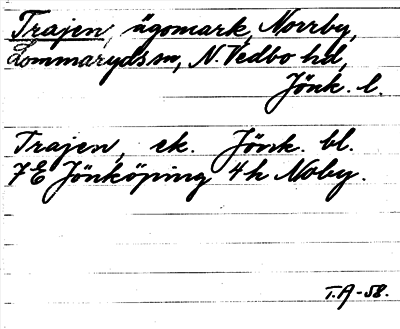 Trajen, ägomark, Norrby,
Lommaryds sn, N. Vedbo hd,
Jönk. l.
Trajen, ek. Jönk. bl.
7E Jönköping 4h Noby.
T.A-58.